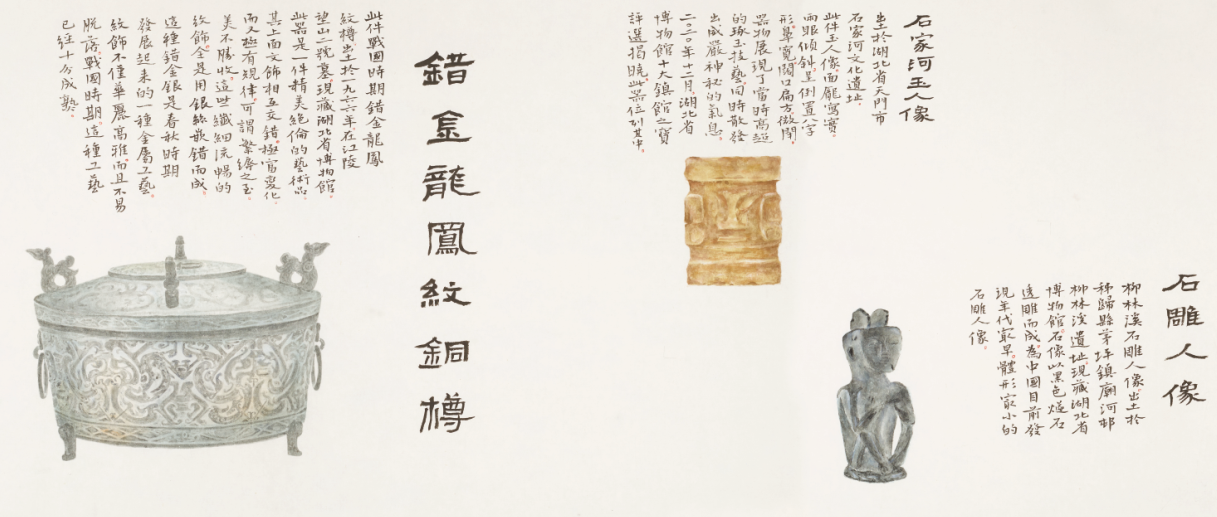 石雕人像
柳林溪石雕人像出土於
秭歸縣茅坪鎮廟河村
柳林溪遺址。現藏湖北省
博物館。石像以黑色燧石
透雕而成。為中國目前發
現年代最早。體形最小的
石雕人像。
石家河玉人像
出土於湖北省天門市
石家河文化遺址。
此件玉人像面龐寬實。
兩眼傾斜。呈倒置八字
形。鼻寬闊。口扁方。微閉。
器物展現了當時高超
的琢玉技藝。同時散發
出威嚴神秘的氣息。
二〇二〇年十二月。湖北省
博物館十大鎮館之寶
評選揭曉。此器位列其中。
錯金龍鳳紋銅樽
此件戰國時期錯金龍鳳
紋樽出土於一九六六年。在江陵
望山二號墓。現藏湖北省博物館。
此器是一件精美絕倫的藝術品。
其上面文飾相互交錯。極富變化。
而又極有規律。可謂繁縟之至。
美不勝收。這些纖細流暢的
紋飾。全是用銀絲嵌錯而成。
這種錯金銀是春秋時期
發展起來的一種金屬工藝。
紋飾不僅華麗高雅。而且不易
脫落。戰國時期。這種工藝
已經十分成熟。